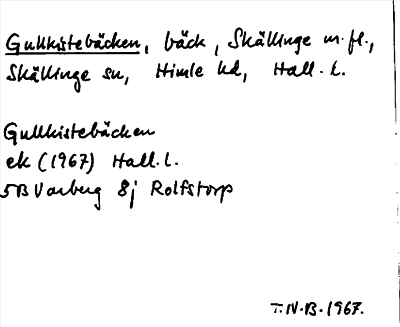 Gullkistebäcken, bäck, Skällinge m.fl.,
Skällinge sn, Himle hd, Hall. l.
Gullkistebäcken
ek (1967) Hall. l.
5B Varberg 8j Rolfstorp
T.N.B. 1967.